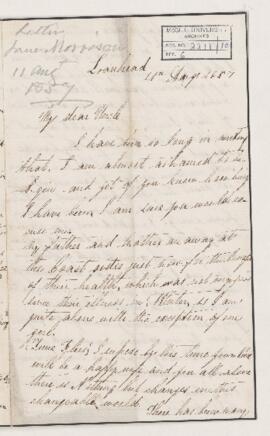 Letter
Jane Morrison
11 Aug
1857
McGILL UNIVERSITY
ARCHIVES
ACC. NO.
REF. 6
Loanhead
11th Aug 1857
My dear Uncle
I have been so long in writing
that I am almost ashamed to
you and yet if you knew how busy
I have been I am sure you would
me
My father and mother are away at
the Coast just now for the
of their health, which was not
since their illness in Winter, so I am
quite alone with the exception of
Time flies I suppose by this time
will be a happy wife and you all alone
there is nothing but changes in this
changeable world.
There has been many